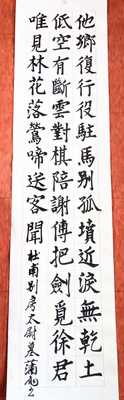 他鄉復行役駐馬別孤墳近淚無乾土
低空有斷雲對棋陪謝傅把劍覓徐君
唯見林花落鶯啼送客聞
杜甫別房太尉墓